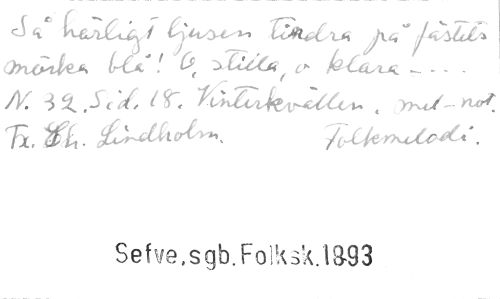 Så härligt ljusen tindra på fästets
mörka blå! O, stilla, o klara - - - -
N. 32. Sid. 18. Vinterkvällen. mel-not.
Tx. Ch. Lindholm. Folkmelodi.
Sefve, sgb. Folksk. 1893